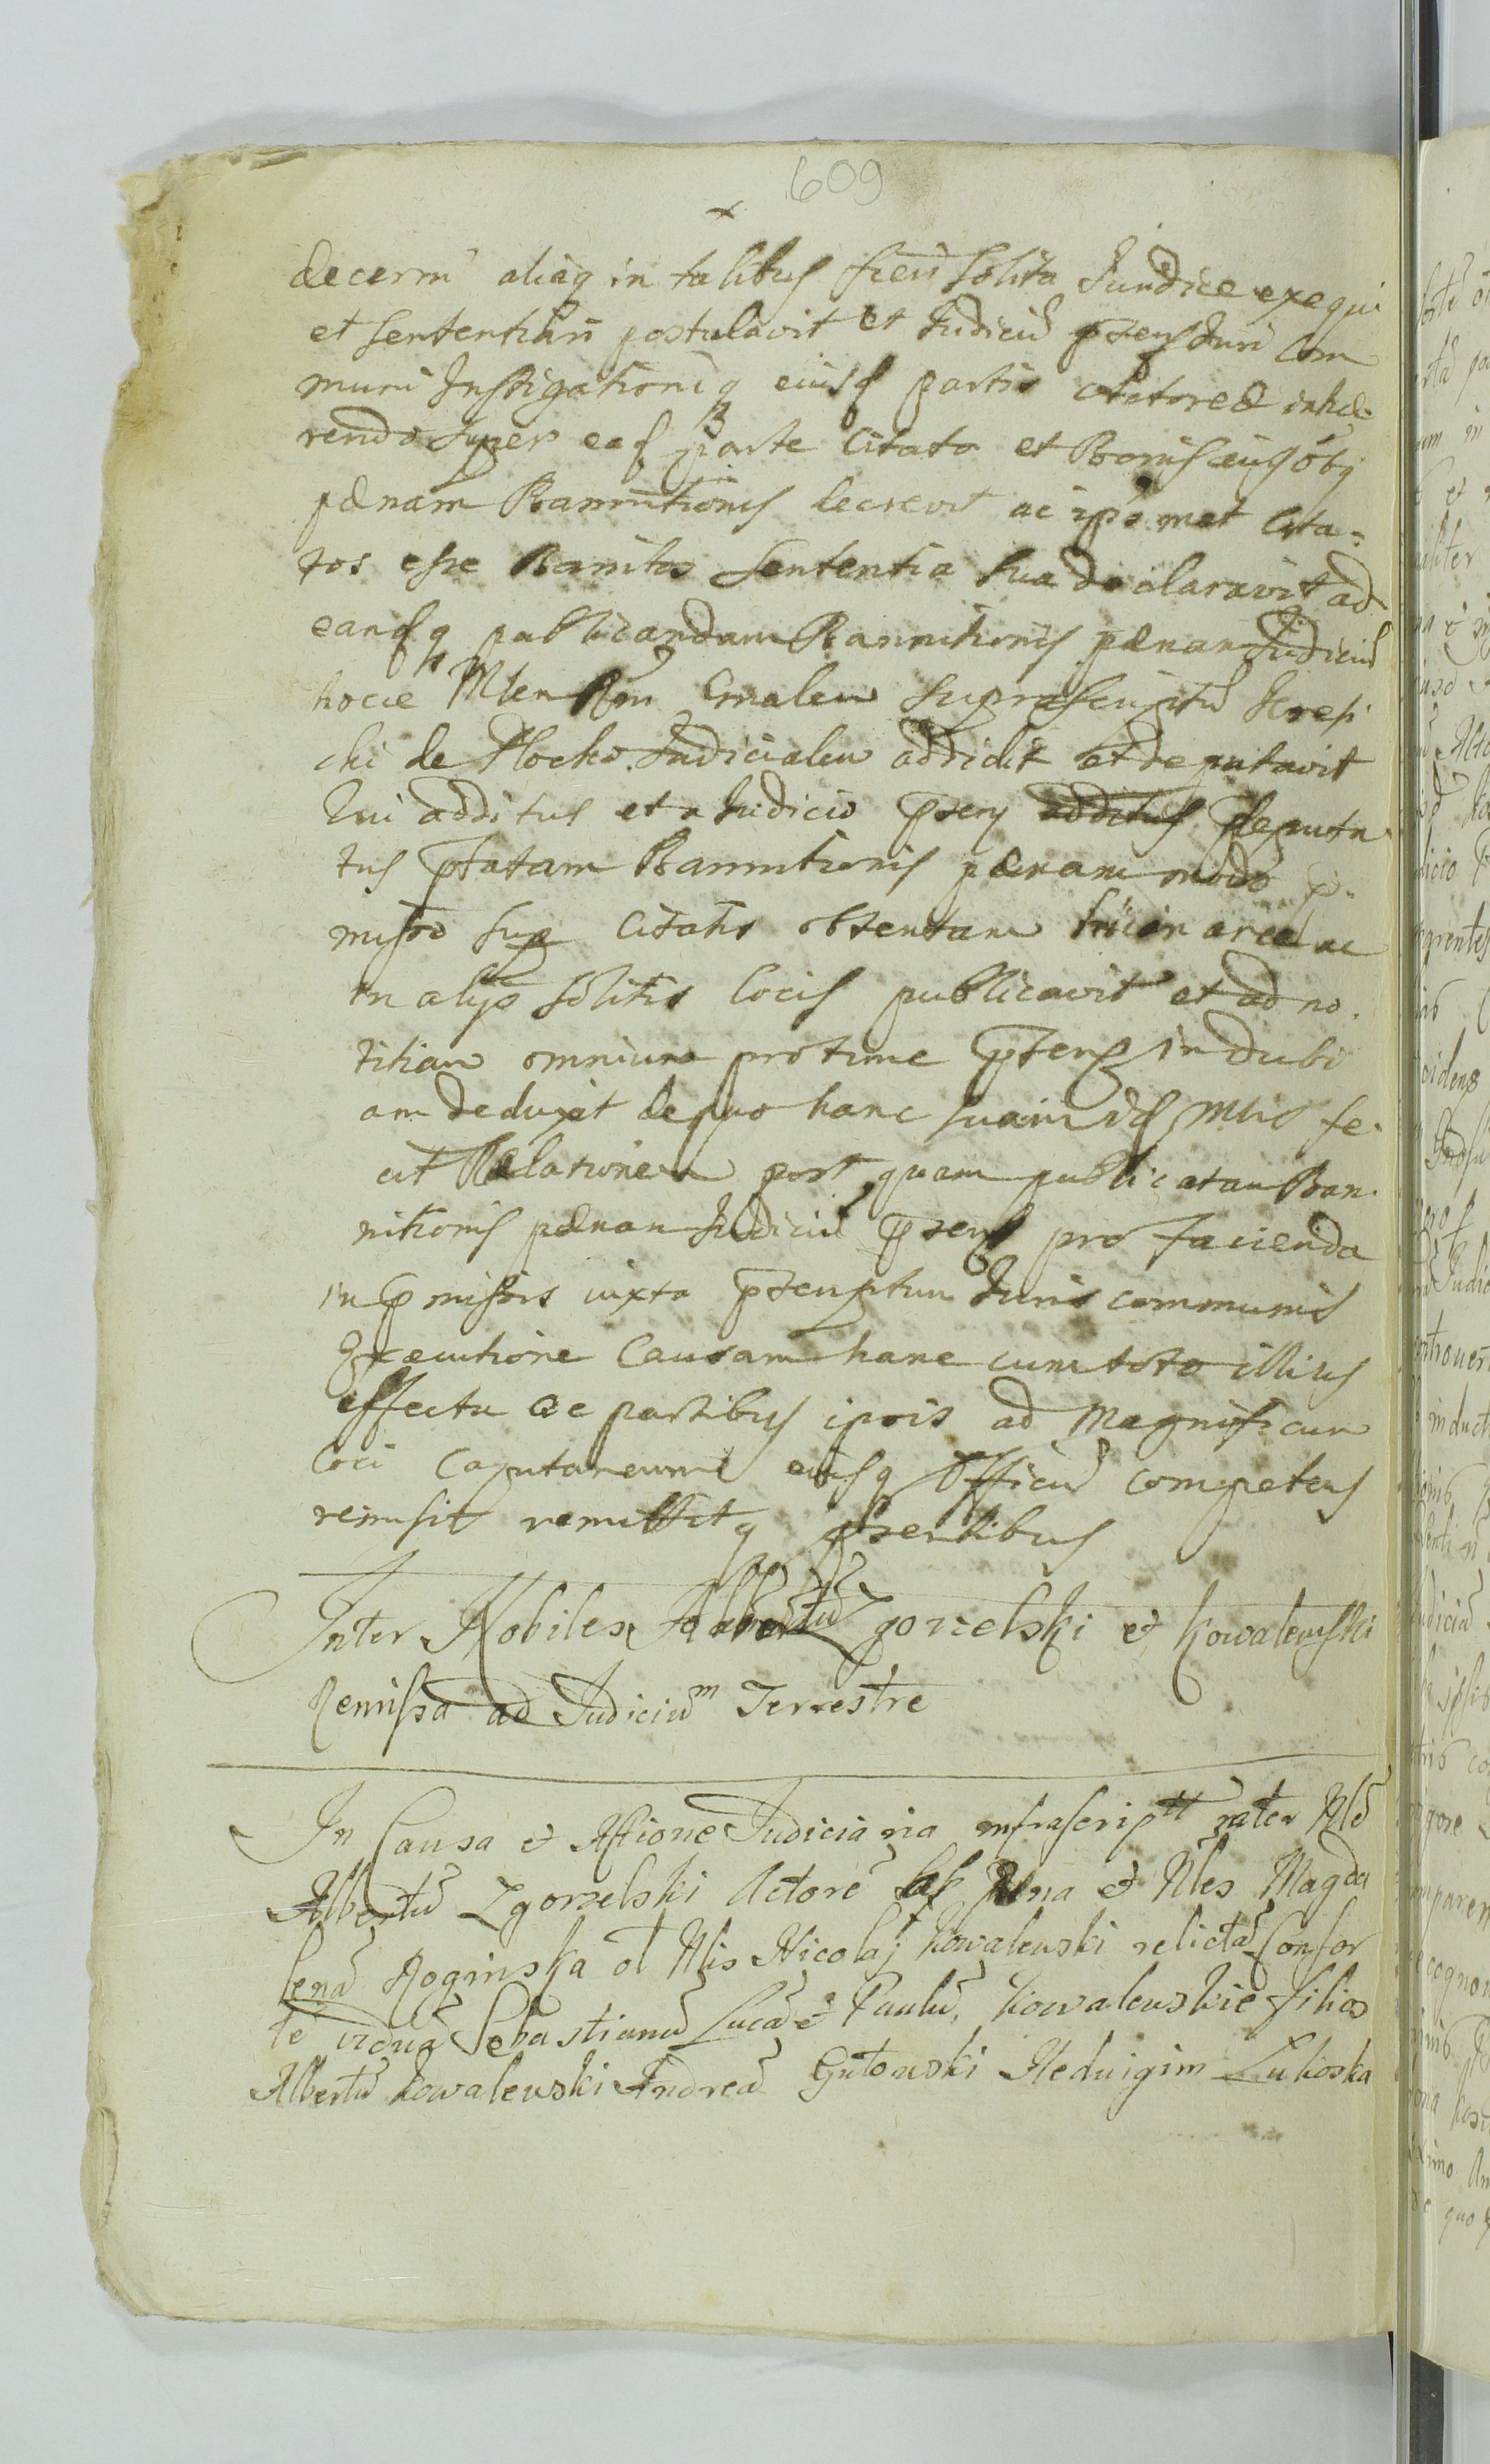 609
decerni aliaq in talibus fieri solita Juridice exequi
et sententiari postulavit et Judiciu pñs Juri Com
muni Instigationiq eiusd partis Actoreæ inhæ-
rendo super ead parte Citata et Bonis eius oibq
pænam Bannitionis decrevit ac ipsosmet Cita=
tos esse Banitos Sententia sua declaravit ad
eandq publicandam Bannitionis pænam Judiciu
hocce Mlem Gñalem suprascriptu
chi de Plocko Judicialem addidit et deputavit
Qui additus et a Judicio pñs additus deputa
tus pfatam Bannitionis pænam modo p-
misso supe Citatis obtentam hic in arce ac
in alijs solitis locis publicavit et ad no-
titiam omnium pro tunc pñs indubi
am deduxit de quo hanc suam id Mlis fe-
cit Relationem post quam publicatam Ban-
nitionis pænam Judiciu pñs pro facienda
in pmissis iuxta pscriptum Juris communis
Executione Causam hanc cum toto illius
effectu ac partibus ipsis ad Magnificum
loci Capitaneum eiusq Officiu competens
remisit remittitq psentibus
Inter Nobiles Albertu Zgorzelski et Kowalewski
Remissa ad Judiciũm Terrestre
In Causa et Actione Judiciaria infrascriptt inter Nlẽ
Albertũ Zgorzelski Actorẽ et Nles Magda
lenã Roginska ol Nlis Nicolaj Kowalewski relictã Consor
tẽ viduã Sebastianũ Lucã et Paulũ, Kowalewskie filios
Albertũ Kowalewski Andreã Gutowski Heduigim Lukoska